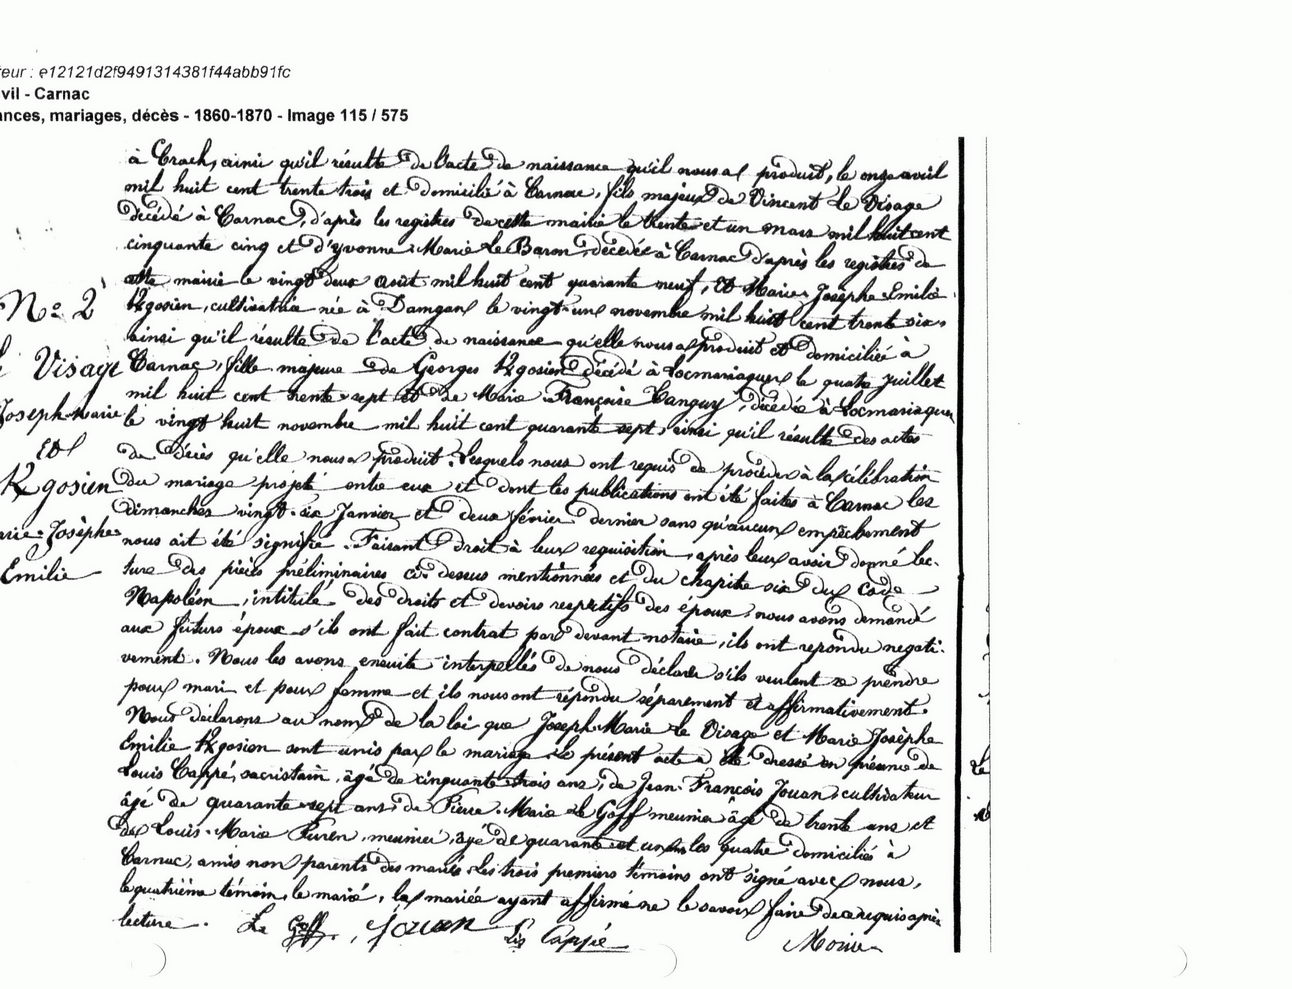 teur : e12121d2f9491314381f44abb91fc
vil - Carnac
ances, mariages, décès - 1860-1870 - Image 115 / 575
à Crach, ainsi qu'il résulte de l'acte de naissance qu'il nous a produit, le onze avril
mil huit cent trente trois et domicilié à Carnac, fils majeur de Vincent Le Visage
décédé à Carnac, d'après les registres de cette mairie le trente et un mars mil huit cent
cinquante cinq et d'Yvonne Marie Le Baron, décédée à Carnac d'après les registres de
cette mairie le vingt deux août mil huit cent quarante neuf, Et Marie Josèphe Emilie
Kgosien, cultivatrice née à Damgan le vingt-un novembre mil huit cent trente six,
ainsi qu'il résulte de l'acte de naissance qu'elle nous a produit et domiciliée à
Carnac, fille majeure de Georges Kgosien décédé à Locmariaquer le quatre juillet
mil huit cent trente-sept et de Marie Françoise Tanguy, décédée à Locmariaquer
le vingt huit novembre mil huit cent quarante sept, ainsi qu'il résulte des actes
de décès qu'elle nous a produit. Lesquels nous ont requis de procéder à la célébration
du mariage projeté entre eux et dont les publications ont été faites à Carnac les
dimanches vingt-six Janvier et deux février dernier sans qu'aucun empêchement
nous ait été signifié. Faisant droit à leur requisition, après leur avoir donné lec-
ture des pièces préliminaires ci-dessus mentionnées et du chapitre six du Code
Napoléon, intitulé des droits et devoirs respectifs des époux, nous avons demandé
aux futurs époux s'ils ont fait contrat par devant notaire, ils ont repondu negati-
vement. Nous les avons ensuite interpellés de nous déclarer s'ils veulent se prendre
pour mari et pour femme et ils nous ont répondu séparement et affirmativement.
Nous déclarons au nom de la loi que Joseph Marie Le Visage et Marie Josèphe
Emilie Kgosien sont unis par le mariage. Le présent acte a été dressé en présence de
Louis Cappé, sacristain, âgé de cinquante trois ans, de Jean-François Jouan, cultivateur
âgé de quarante-sept ans, de Pierre-Marie Le Goff meunier âgé de trente ans et
de Louis-Marie Furen, meunier, âgé de quarante et un ans les quatre domiciliés à
Carnac, amis non parents des mariés, les trois premiers témoins ont signé avec nous,
le quatrième témoin, le marié, la mariée ayant affirmé ne le savoir faire de ce requis après
lecture.
Le Goff, Jouan Lis Cappé
No 2
Visage
Joseph Marie
Et
Kgosien
arie-Josèphe
Emilie
Le